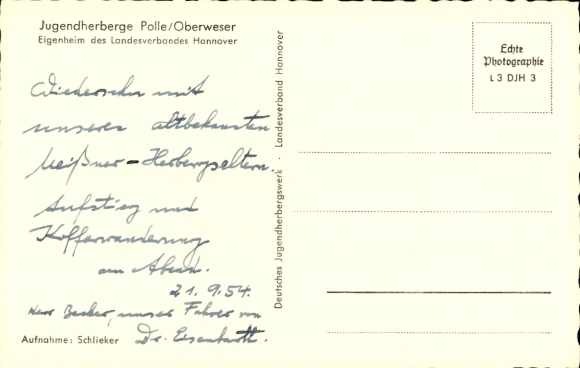 Jugendherberge Polle/Oberweser
Eigenheim des Landesverbandes Hannover
Wiedersehn mit
unseren altbekannten
Meißner-Herbergseltern.
Aufstieg und
Kofferwanderung
am Abend.
21.9.54.
Herr Becker, unser Fahrer von
Dr. Eisenbarth.
Aufnahme: Schlieker
Deutsches Jugendherbergswerk · Landesverband Hannover
Echte
Photographie
L 3 DJH 3